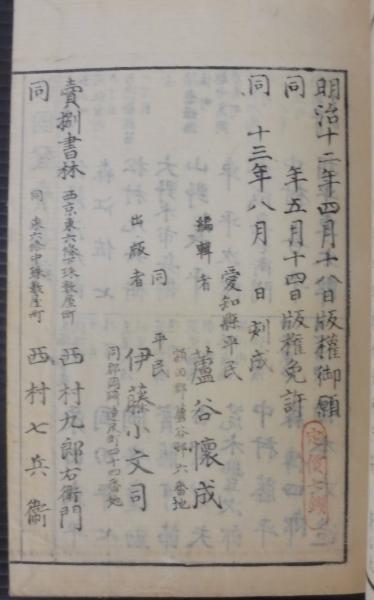 明治十二年四月十八日版權御願
同 年五月十四日版權免許
同 十三年八月 日刻成
愛知縣平民
編輯者 蘆谷懷成
額田郡蘆谷邨六番地
同 平民
出版者 伊藤小文司
同郡岡崎連尺町四十四番地
賣捌書林 西京東六條珠数屋町 西村九郎右衛門
同 同 東六條中珠数屋町 西村七兵衞